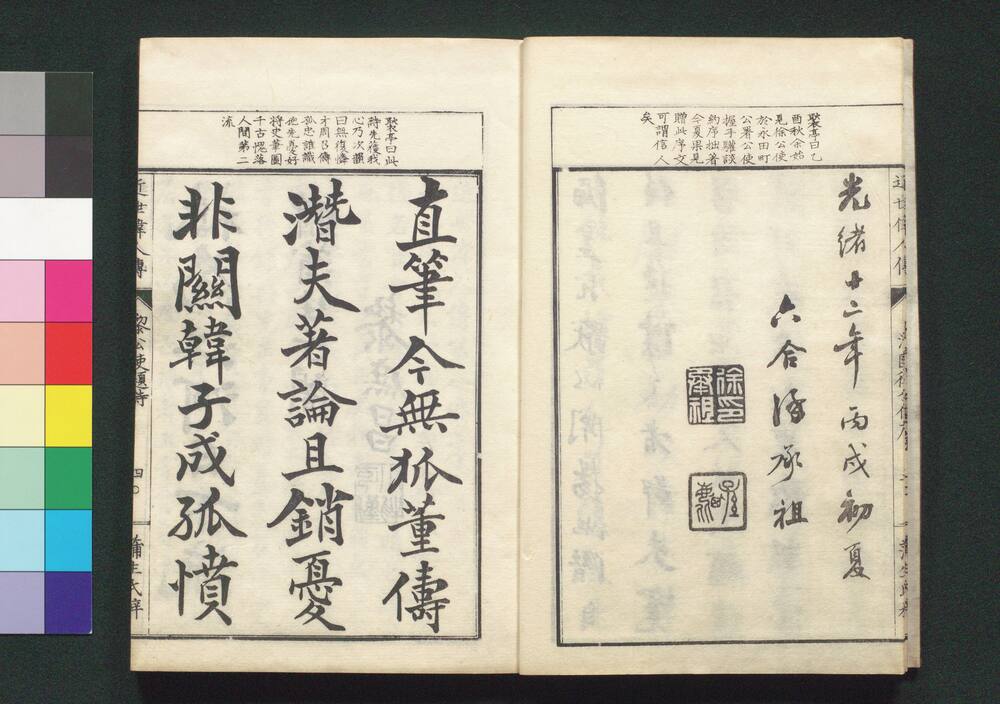 褧亭曰乙
酉秋余始
見徐公使
於永田町
公署公使
握手驩談
約序拙著
今夏果見
贈此序文
可謂信人
矣
光緒十二年丙戌初夏
六合徐承祖
徐印承祖
孫麒
褧亭曰此
詩先獲我
心乃次韻
曰無復
才周
孤忠誰識
他先憂好
將史筆圖
千古愧落
人間第二
流
直筆今無狐董儔
潛夫著論且銷憂
非關韓子成孤憤
近世偉人傳
黎公使題詩
四〇
蒲生氏梓